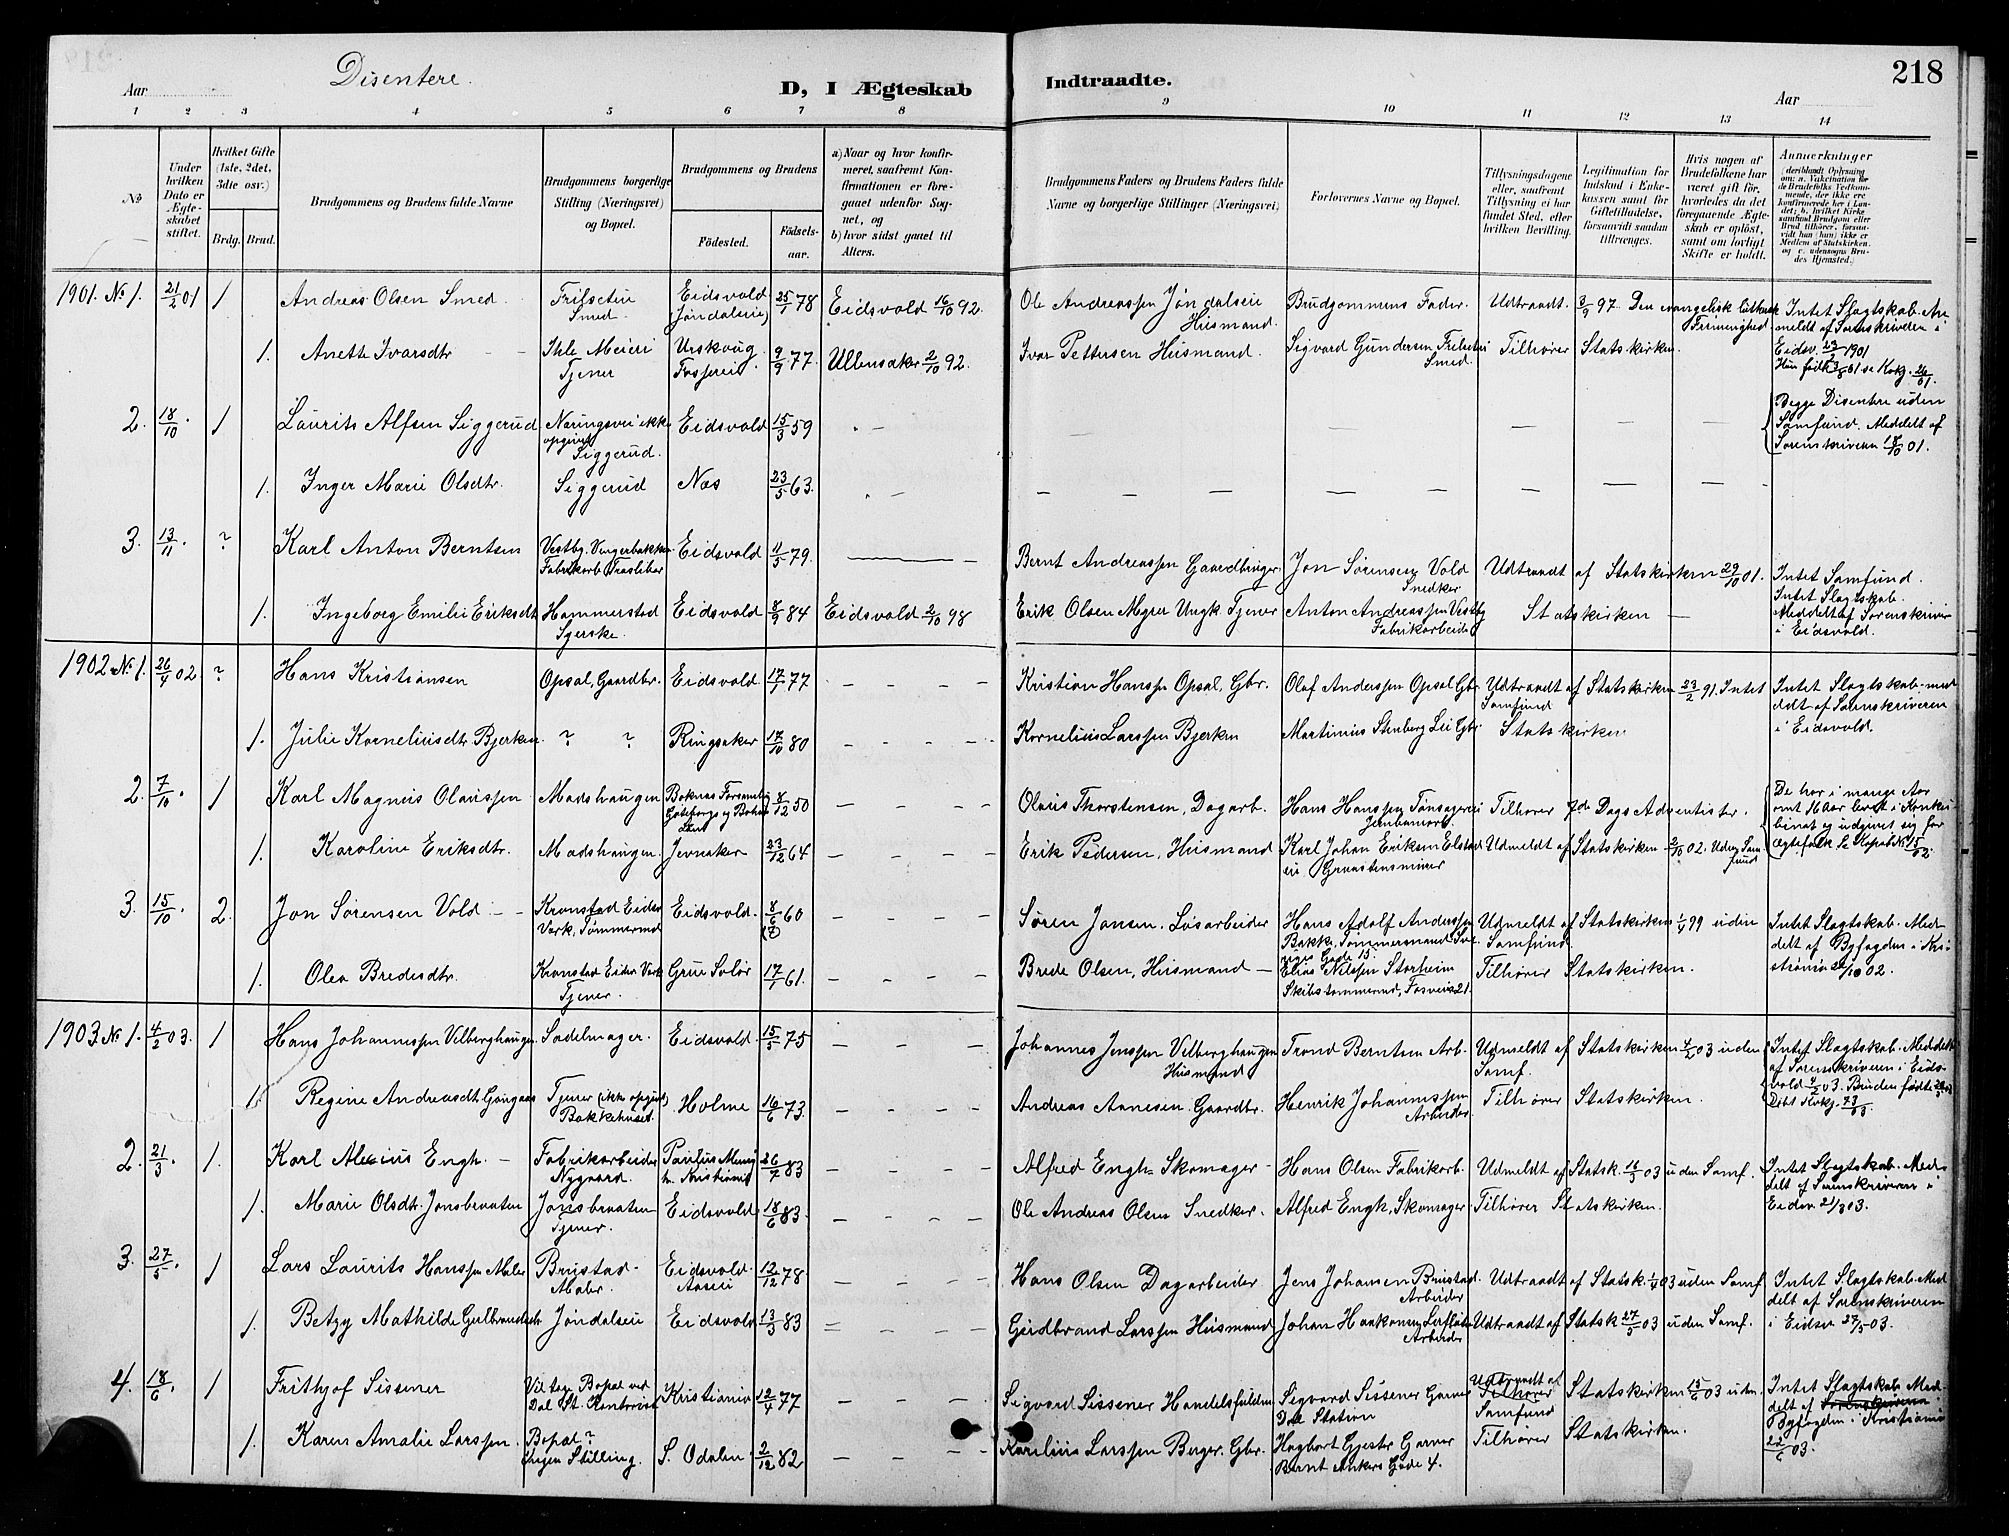 218
Disentere.
Aar
D, I Ægteskab
Indtraadte.
Aar
1 2 3 4 5 6 7 8 9 10 11 12 13 14
No
Under hvilken Dato er Ægteskabet stiftet.
Hvilket Gifte (1ste, 2det, 3die osv.)
Brdg. Brud.
Brudgommens og Brudens fulde Navne
Brudgommens borgerlige Stilling (Næringsvei) og Bopæl.
Brudgommens og Brudens
Fødested. Fødselsaar.
a) Naar og hvor konfirmeret, saafremt Konfirmationen er foregaaet udenfor Sognet, og
b) hvor sidst gaaet til Alters.
Brudgommens Faders og Brudens Faders fulde Navne og borgerlige Stillinger (Næringsvei)
Forlovernes Navne og Bopæl.
Tillysningsdagene eller, saafremt Tillysning ei har fundet Sted, efter hvilken Bevilling.
Legitimation for Indskud i Enkekassen samt for Giftetilladelse, forsaavidt saadan tiltrænges.
Hvis nogen af Brudefolkene har været gift før, hvorledes da det foregaaende Ægteskab er opløst, samt om lovligt Skifte er holdt.
Anmerkninger (deriblandt Oplysning om: a. Vakcination for de Brudefolks Vedkommende, der ikke ere konfirmerede her i Landet; b. hvilket Kirkesamfund Brudgom eller Brud tilhører, forsaavidt han (hun) ikke er Medlem af Statskirken, og c. udensogns Brudes Hjemsted.)
1901. No 1. 21/2 01 1 Andreas Olsen Smed. Smed. Eidsvold (Jøndalseie) 25/1 78 Eidsvold 16/10 92. Ole Andreassen Jøndalseie Husmand. Brudgommens Fader. Udtraadt. 3/9 97. Den evangelisk luthersk Frimenighed Intet Slagtskab. Anmeldt af Sorenskriveren i Eidsv. 23/2 1901
1. Anette Ivarsdtr Ihle Meieri Tjener Urskoug 9/9 77. Ullensaker 2/10 92. Ivar Pettersen Husmand. Sigvard Gundersen Smed. Tilhører Statskirken.
2. 18/10 1 Laurits Alfsen Siggerud Næringsvei ikke opgivet Siggerud. Eidsvold 15/3 59 Begge Disentere uden Samfund. Meddelt af Sorenskriveren 18/10 01.
1. Inger Marie Olsdtr. Siggerud Næs 23/5 63.
3. 13/11 ? Karl Anton Berntsen Eidsvold 11/5 79. Bernt Andreassen Jon Sørensen Vold Snedker Udtraadt af Statskirken 29/10 01. Intet Samfund. Intet Slagtskab. Meddelt af Sorenskriver i Eidsvold.
1. Ingeborg Emilie Eriksdt Hammerstad Syerske. Eidsvold 8/9 84 Eidsvold 2/10 98 Erik Olsen Myrer Ungk. Tjener Anton Andreassen Vestby Fabrikarbeider Statskirken
1902 No 1. 26/4 02 ? Hans Kristiansen Opsal, Gaardbr. Eidsvold 17/1 77 Kristian Hanssen Opsal, Gbr. Olaf Anderssen Opsal Gbr. Udtraadt af Statskirken 23/2 91. Intet Samfund Intet Slagtskab. meddelt af Sorenskriveren i Eidsvold.
1. Julie Kornelius dtr Bjerken ? ? Ringsaker 17/10 80 Kornelius Larssen Bjerken Martinius Stenberg Lei Gbr Statskirken
2. 7/10 1 Karl Magnus Olaussen Madshaugen 8/12 50 Olaus Thorstensen, Dagarb. Hans Hanssen Tilhører 7de Dags Adventister. De har i mange Aar omt 16 Aar levet i Konkubinat og udgivet sig for Ægtefolk
1. Karoline Eriksdtr. Madshaugen. Jevnaker 23/12 64 Erik Pedersen, Husmand Karl Johan Eriksen Elstad Udmeldt af Statskirken 2/10 02. Uden Samfund
3. 15/10 2. Jon Sørensen Vold Kronstad Eidsv Værk, Tømmermd Eidsvold. 8/6 60 (7) Søren Jonsen, Løsarbeider Hans Adolf Anderssen Bakke, Tømmermand Udmeldt af Statskirken 1/4 99 uden Samfund Intet Slagtskab. Meddelt af Byfogden i Kristiania 20/10 02.
1. Olea Bredesdtr. Kronstad Eidsv Værk Tjener. Grue Solør 17/1 61. Brede Olsen, Husmand Elias Nilssen Storheim Tilhører Statskirken.
1903 No 1. 4/2 03. 1 Hans Johannessen Vilberghaugen Sadelmager. Eidsvold. 15/5 75 Johannes Jenssen Vilberghaugen Husmand Trond Berntsen Arb. Udmeldt af Statskirken 03 uden Samf. Intet Slagtskab. Meddelt af Sorenskriveren i Eidsvold 4/2 03.
1. Regine Andreasdt Tjener (ikke opgivet) Bakkehuset. Holme 16/6 73. Andreas Gaardbr. Henrik Johannessen Arbeider Tilhører Statskirken.
2. 21/3 1. Karl Alexius Engh. Fabrikarbeider Nygaard. Paulus Menig h. Kristiania 26/7 83 Alfred Engh Skomager Hans Olsen Fabrikarb. Udmeldt af Statsk. 16/3 03 uden Samf. Intet Slagtskab. Meddelt af Sorenskriveren i Eidsv 21/3 03.
1. Marie Olsdtr. Jønsbraaten Jønsbraaten Tjener. Eidsvold 18/6 83. Ole Andreas Olsen Snedker. Alfred Engh, Skomager Tilhører Statskirken.
3. 27/5 1 Lars Laurits Hanssen Maler Brustad Maler. Eidsvold. 12/12 78 Hans Olsen Dagarbeider Jens Johansen Brustad Arbeider Udtraadt af Statsk. 03 uden Samf Intet Slagtskab. Meddelt af Sorenskriveren i Eidsv 27/5 03.
1. Betzy Mathilde Gulbrandsdtr Jøndalseie Eidsvold 13/3 83 Gudbrand Larssen Husmand Johan Haakonsen Arbeider Udtraadt af Statsk 27/5 03 uden Samf.
4. 18/6 1 Frithjof Sissener Bopæl ved Dal St. Kontorist Kristiania 12/4 77 Sigvard Sissener Sigvard Sissener Dal Station Udtraadt af Tilhører Statskirken 15/6 03 uden Samfund Intet Slagtskab. Meddelt af Sorenskriveren Byfogden i Kristiania 03.
1. Karen Amalie Larssen Bopæl? ingen Stilling. S. Odalen 2/12 82 Karelius Larssen Berger, Gbr. Bernt Ankers Gade 4. Tilhører Statskirken.